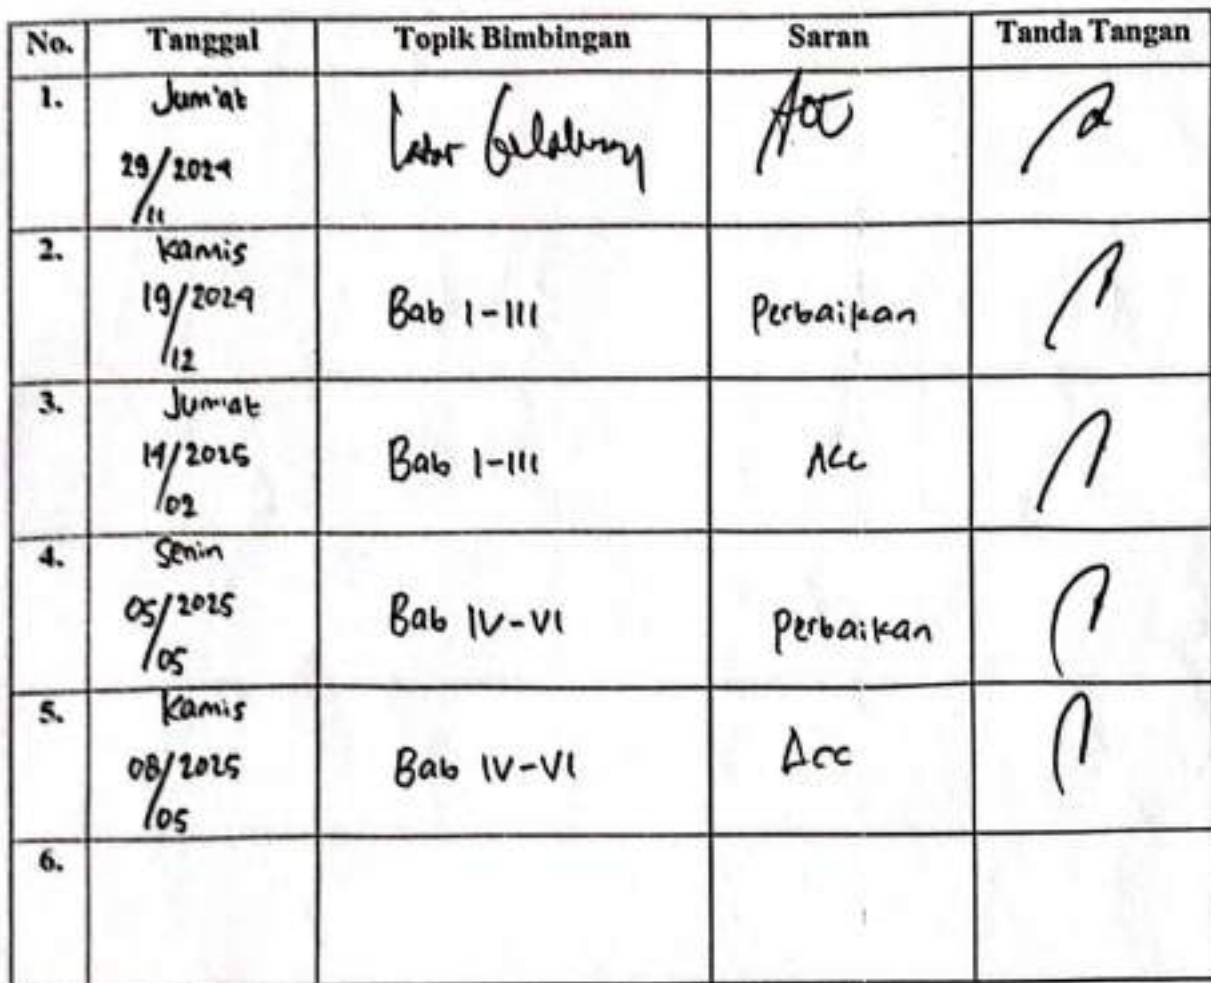 No. Tanggal Topik Bimbingan Saran Tanda Tangan
1. Jum'at
29/2024
/11
Latar Belakang
ACC
2. Kamis
19/2024
/12
Bab I-III
Perbaikan
3. Jum'at
14/2025
/02
Bab I-III
Acc
4. Senin
05/2025
/05
Bab IV-VI
Perbaikan
5. Kamis
08/2025
/05
Bab IV-VI
Acc
6.